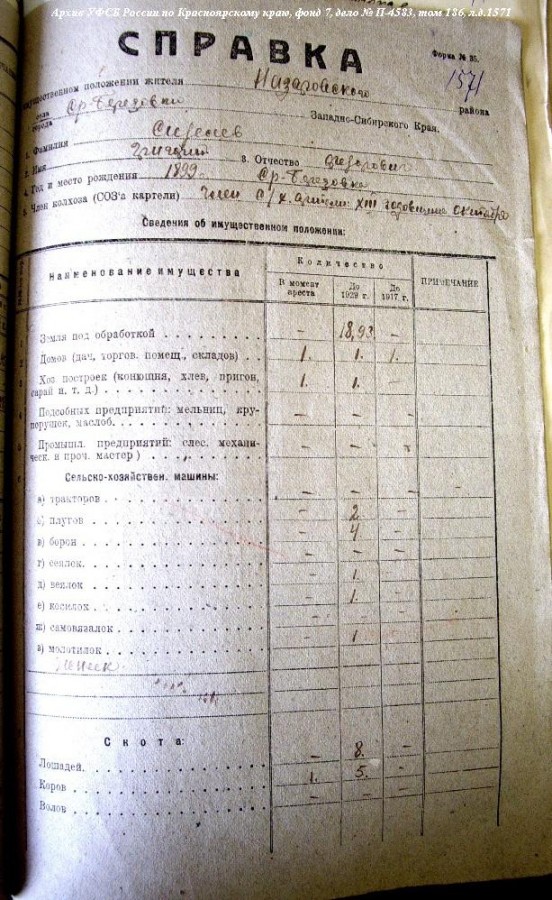 Архив УФСБ России по Красноярскому краю, фонд 7, дело № П-4583, том 186, л.д.1571
СПРАВКА
Форма № 35.
1571
имущественном положении жителя Назаровского района
села города Ср-Березовки Западно-Сибирского Края.
1. Фамилия
2. Имя Григорий 3. Отчество
4. Год и место рождения 1899 Ср-Березовка
5. Член колхоза (СОЗ'а картели) Член с/х. артели XIII годовщина октября
Сведения об имущественном положении:
Наименование имущества
Количество
В момент ареста
До 1929 г.
До 1917 г.
ПРИМЕЧАНИЕ
Земля под обработкой - 18,93 -
Домов (дач, торгов. помещ., складов) 1. 1. 1.
Хоз. построек (конюшня, хлев, пригон,
сарай и. т. д.) 1. 1. -
Подсобных предприятий: мельниц, кру-
порушек, маслоб. - - -
Промышл. предприятий: слес. механи-
ческ. и проч. мастер) - - -
Сельско-хозяйствен. машины:
а) тракторов - - - -
б) плугов - 2 -
в) борон - 4 -
г) сеялок - - -
д) веялок - 1. -
е) косилок - 1. -
ж) самовязалок - - -
з) молотилок - 1 -
Скота:
Лошадей - 8. -
Коров 1. 5. -
Волов - - -